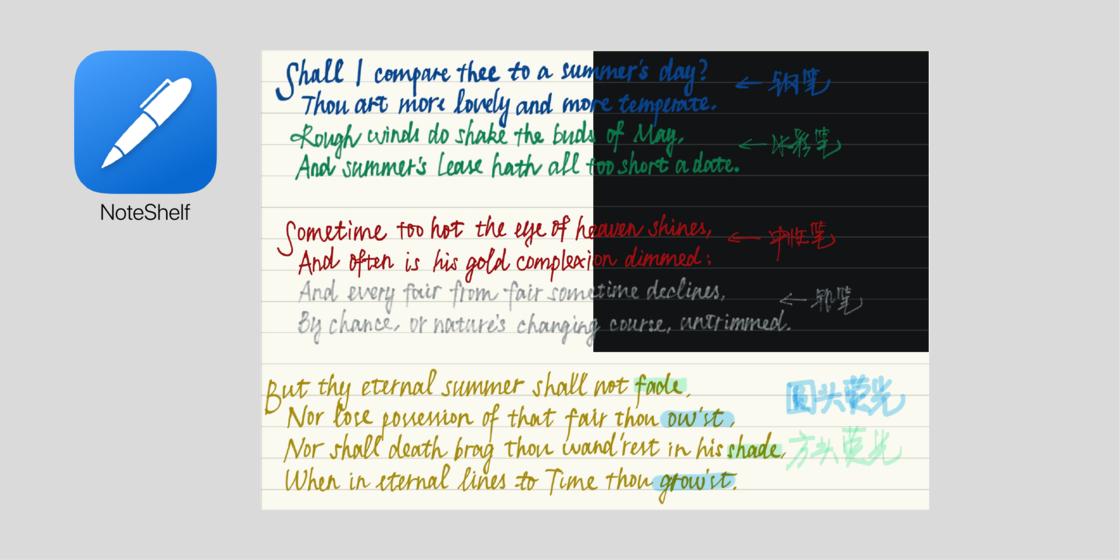 NoteShelf
Shall I compare thee to a summer's day?
← 钢笔
Thou art more lovely and more temperate.
Rough winds do shake the buds of May,
← 水彩笔
And summer's Lease hath all too short a date.
Sometime too hot the eye of heaven shines,
← 中性笔
And often is his gold complexion dimmed:
And every fair from fair sometime declines,
← 铅笔
By chance, or nature's changing course, untrimmed.
But thy eternal summer shall not fade,
圆头荧光
Nor lose possession of that fair thou ow'st,
Nor shall death brag thou wand'rest in his shade,
方头荧光
When in eternal lines to Time thou grow'st.